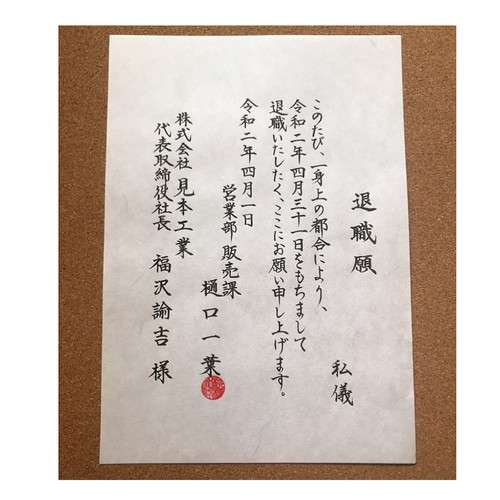 退職願
私儀
このたび、一身上の都合により、
令和二年四月三十一日をもちまして
退職いたしたく、ここにお願い申し上げます。
令和二年四月一日
営業部 販売課
樋口一葉
株式会社 見本工業
代表取締役社長 福沢諭吉 様